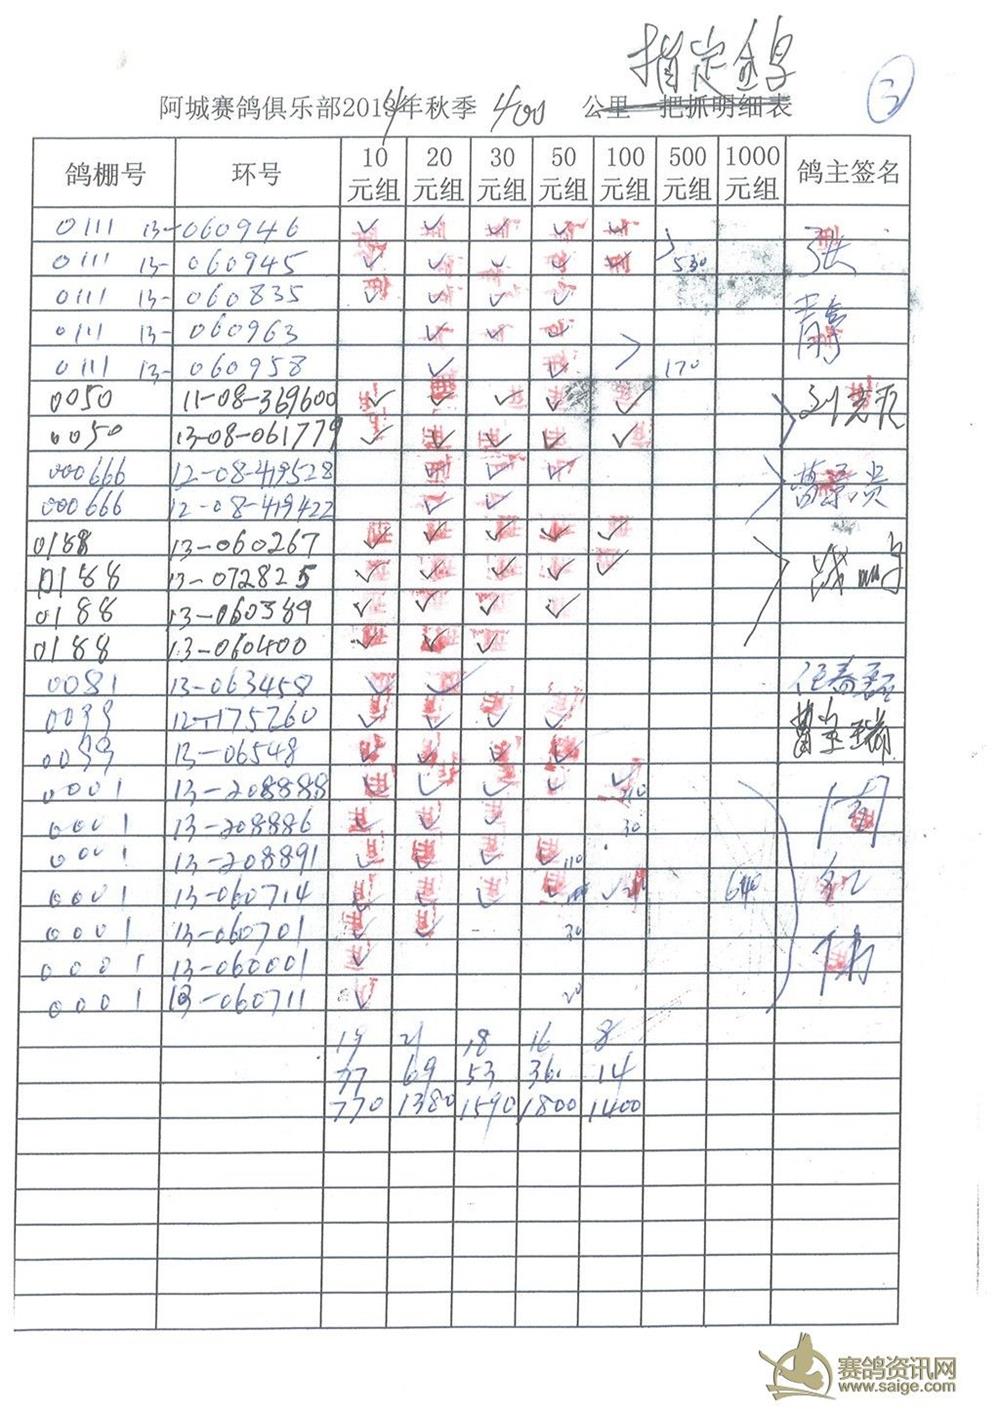 指定鸽
③
阿城赛鸽俱乐部2014年秋季 400 公里 一把抓明细表
鸽棚号 环号 10元组 20元组 30元组 50元组 100元组 500元组 1000元组 鸽主签名
0111 13-060946 ✓ ✓ ✓ ✓ ✓
0111 13-060945 ✓ ✓ ✓ ✓ ✓ 530 张
0111 13-060835 ✓ ✓ ✓ ✓
0111 13-060963 ✓ ✓ ✓ 静
0111 13-060958 ✓ ✓ 170
0050 11-08-369600 ✓ ✓ ✓ ✓ ✓
0050 13-08-061779 ✓ ✓ ✓ ✓ ✓
000666 12-08-419528 ✓ ✓ ✓
000666 12-08-419422 ✓ ✓
0188 13-060267 ✓ ✓ ✓ ✓ ✓
0188 13-072825 ✓ ✓ ✓ ✓ ✓
0188 13-060389 ✓ ✓ ✓ ✓
0188 13-060400 ✓ ✓ ✓
0081 13-063458 ✓ ✓
0099 12-175260 ✓ ✓ ✓ ✓
0099 13-06548 ✓ ✓ ✓ ✓
0001 13-208888 ✓ ✓ ✓ ✓ ✓
0001 13-208886 ✓ ✓ ✓ 30
0001 13-208891 ✓ ✓ ✓ ✓ 110
0001 13-060714 ✓ ✓ ✓ ✓ ✓ 640
0001 13-060701 ✓ ✓ 30
0001 13-060001 ✓
0001 13-060711 ✓ 20
19 21 18 16 8
77 69 53 36 14
770 1380 1590 1800 1400
赛鸽资讯网
www.saige.com